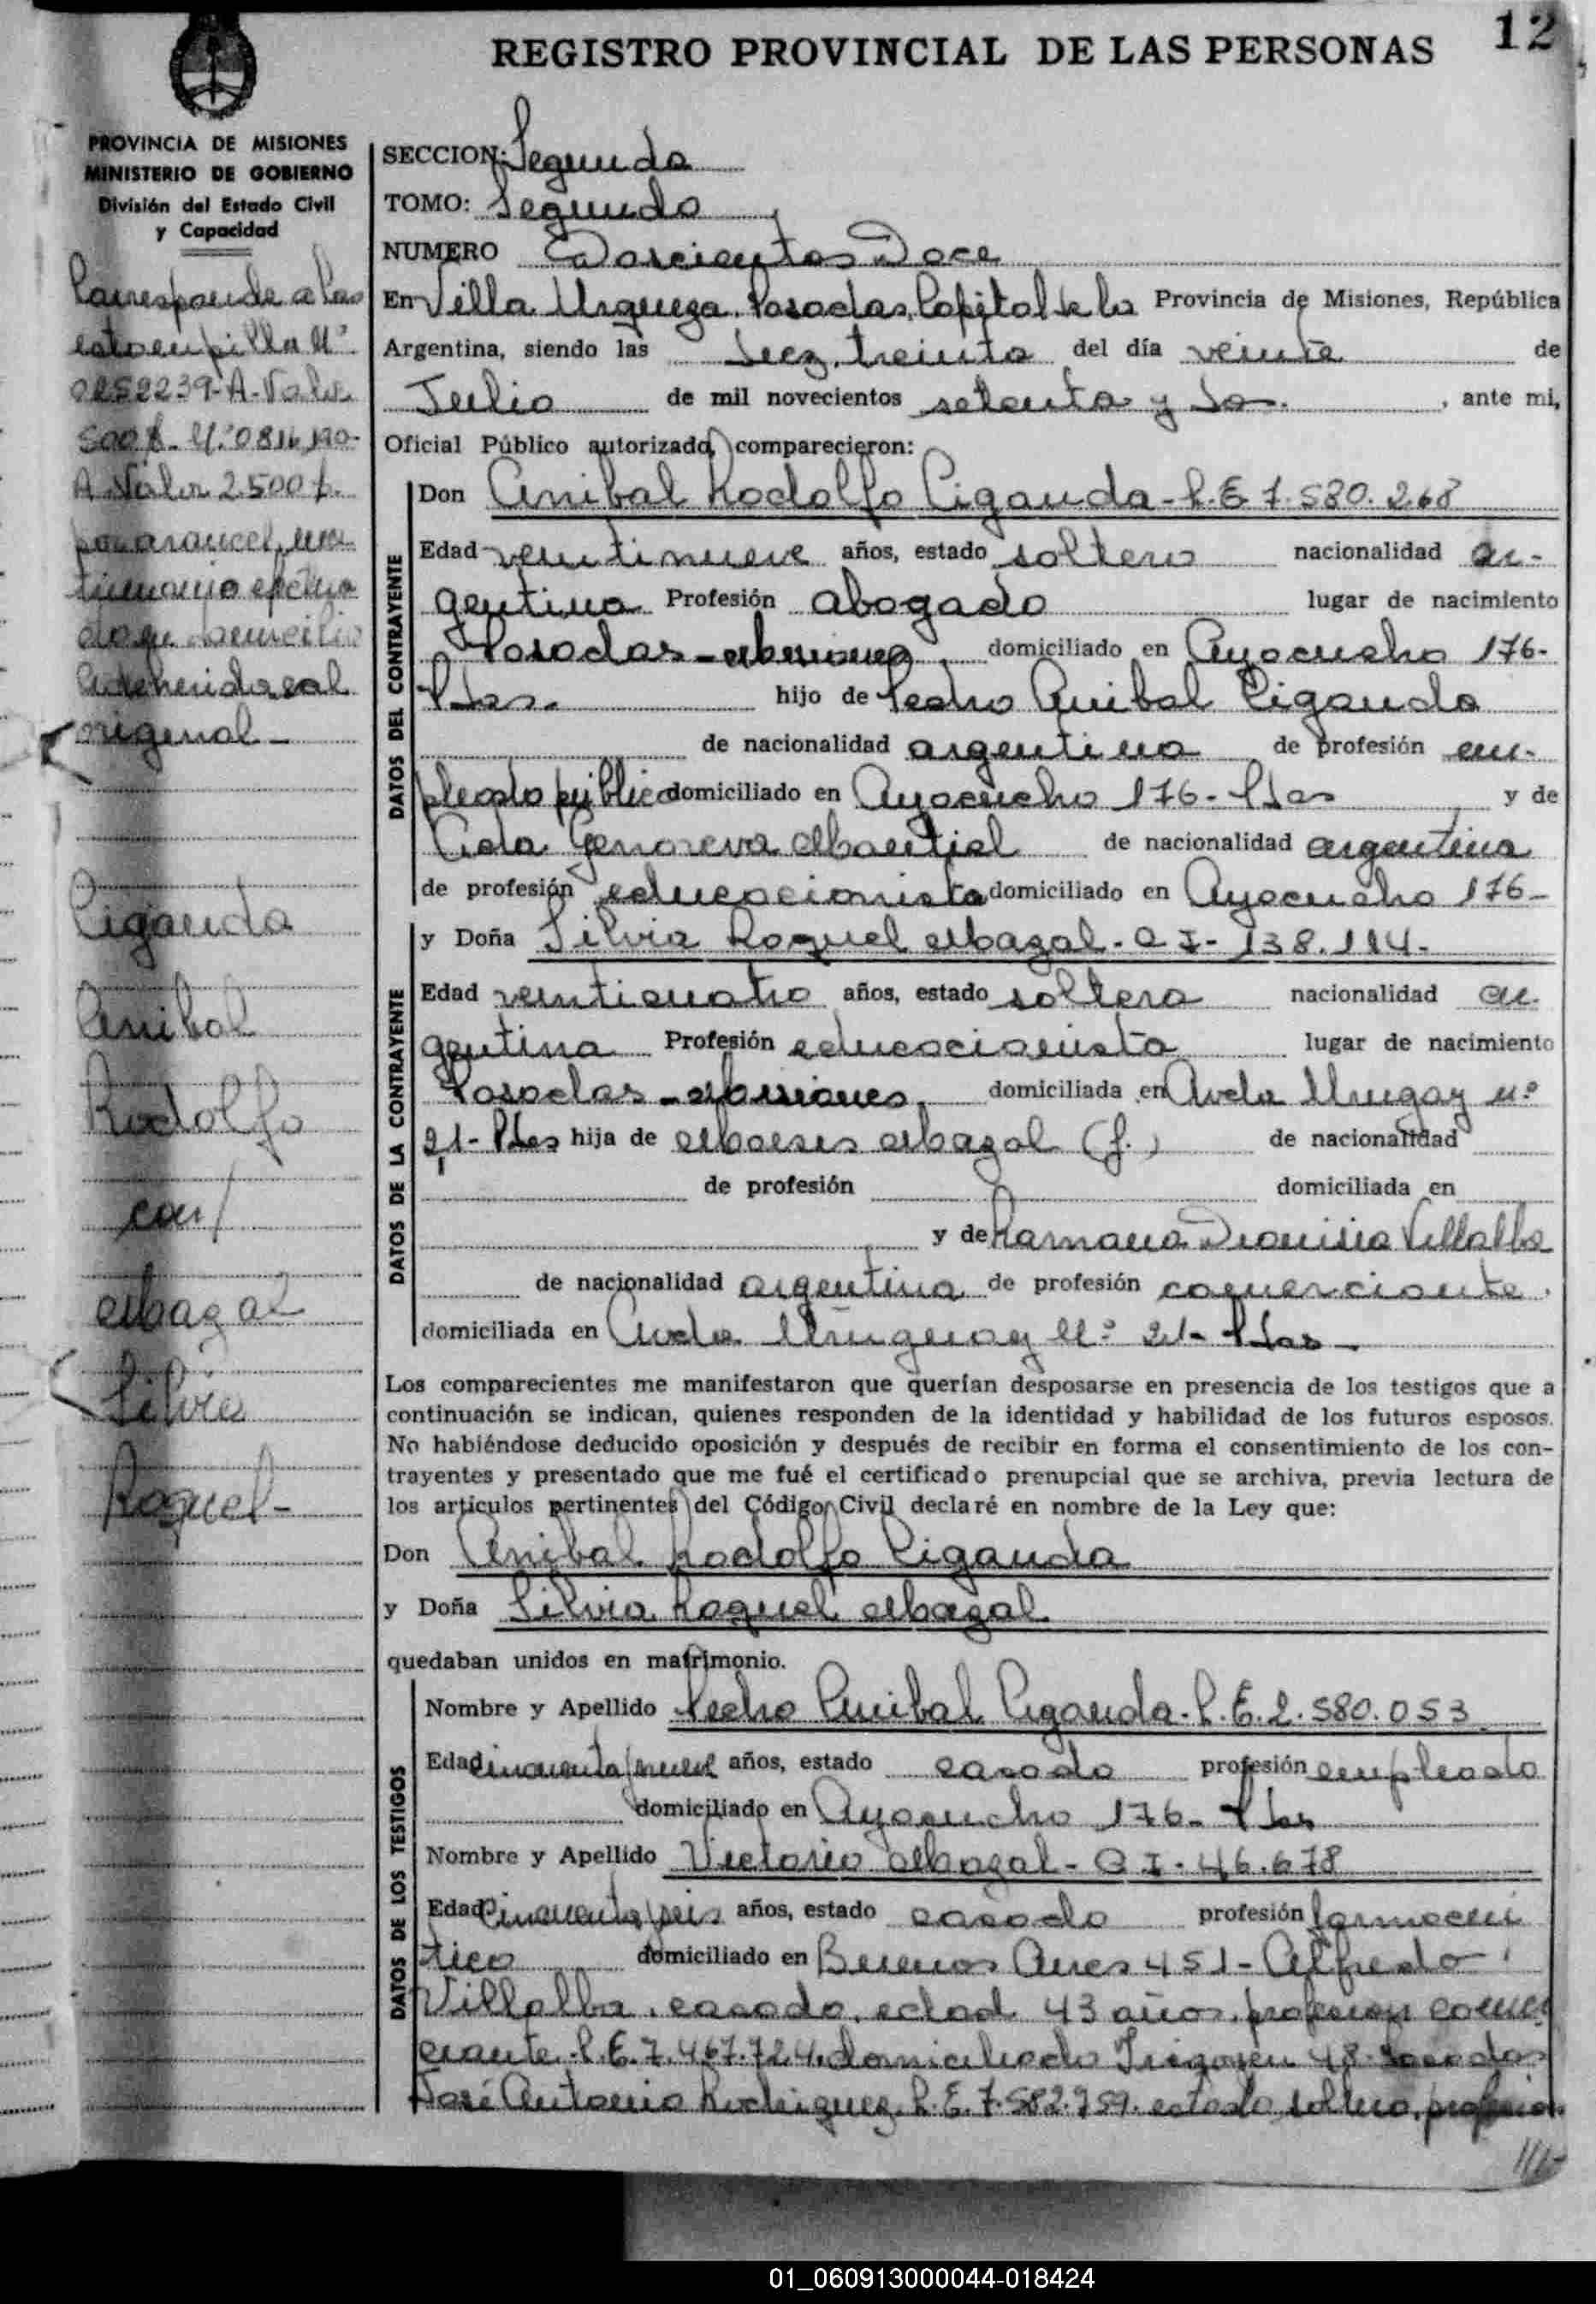 REGISTRO PROVINCIAL DE LAS PERSONAS
12
PROVINCIA DE MISIONES
MINISTERIO DE GOBIERNO
División del Estado Civil
y Capacidad
Corresponde a las
estampilla Nº
0252239-A-Valor
500 $-Nº 0816190-
A Valor 2.500 $.
por arancel, ma
trimonio efectua
do en domicilio
adherida al
original-
Ciganda
Anibal
Rodolfo
con/
Mazal
Silvia
Raquel-
SECCION: Segunda
TOMO: Segundo
NUMERO Doscientos Doce
En Villa Urquiza, Posadas, Capital de la Provincia de Misiones, República
Argentina, siendo las diez, treinta del día veinte de
Julio de mil novecientos setenta y dos. , ante mi,
Oficial Público autorizado, comparecieron:
DATOS DEL CONTRAYENTE
Don Anibal Rodolfo Ciganda-L.E 7.580.268
Edad veintinueve años, estado soltero nacionalidad ar-
gentina Profesión abogado lugar de nacimiento
Posadas-Misiones, domiciliado en Ayacucho 176-
Pdas. hijo de Pedro Anibal Ciganda
de nacionalidad argentina de profesión em-
pleado público domiciliado en Ayacucho 176-Pdas y de
Aida Genoveva Montiel de nacionalidad argentina
de profesión educacionista domiciliado en Ayacucho 176-
DATOS DE LA CONTRAYENTE
y Doña Silvia Raquel Mazal-C I-138.114-
Edad veinticuatro años, estado soltera nacionalidad ar-
gentina Profesión educacionista lugar de nacimiento
Posadas-Misiones, domiciliada en Avda Urugay nº
21-Pdas hija de Moises Mazal (f.) de nacionalidad
de profesión domiciliada en
y de Ramona Dionisia Villalba
de nacionalidad argentina de profesión comerciante.
domiciliada en Avda Uruguay Nº 21-Pdas-
Los comparecientes me manifestaron que querían desposarse en presencia de los testigos que a
continuación se indican, quienes responden de la identidad y habilidad de los futuros esposos.
No habiéndose deducido oposición y después de recibir en forma el consentimiento de los con-
trayentes y presentado que me fué el certificado prenupcial que se archiva, previa lectura de
los artículos pertinentes del Código Civil declaré en nombre de la Ley que:
Don Anibal Rodolfo Ciganda
y Doña Silvia Raquel Mazal
quedaban unidos en matrimonio.
DATOS DE LOS TESTIGOS
Nombre y Apellido Pedro Anibal Ciganda-L.E.2.580.053
Edad cincuenta/nueve años, estado casado profesión empleado
domiciliado en Ayacucho 176-Pdas
Nombre y Apellido Victorio Mazal-C I-46.678
Edad cincuenta/seis años, estado casado profesión farmaceú
tico domiciliado en Buenos Aires 451-Alfredo
Villalba, casado, edad 43 años, profesion comer
ciante-L.E.7.467.724, domiciliado Irigoyen 48-Posadas
José Antonio Rodriguez, L.E.7.582.759. estado soltero, profesion
///-
01_060913000044-018424